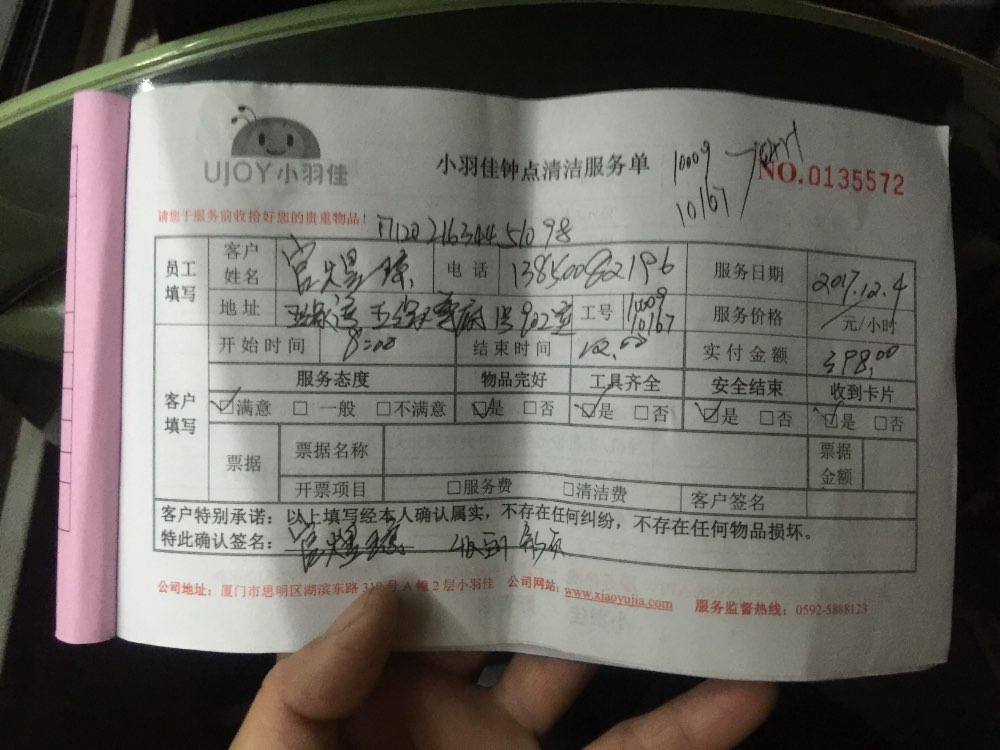 UJOY小羽佳
小羽佳钟点清洁服务单
10009
10167
NO.0135572
请您于服务前收拾好您的贵重物品!
员工填写 客户姓名 电话 服务日期 2017.12.4
地址 902室 工号 10009 10167 服务价格 元/小时
开始时间 8:00 结束时间 12.00 实付金额 398.00
客户填写 服务态度 物品完好 工具齐全 安全结束 收到卡片
☑满意 □一般 □不满意 ☑是 □否 ☑是 □否 ☑是 □否 ☑是 □否
票据 票据名称 票据金额
开票项目 □服务费 □清洁费 客户签名
客户特别承诺:以上填写经本人确认属实,不存在任何纠纷,不存在任何物品损坏。
特此确认签名:
公司地址:厦门市思明区湖滨东路319号A幢2层小羽佳 公司网站:www.xiaoyujia.com 服务监督热线:0592-5888123